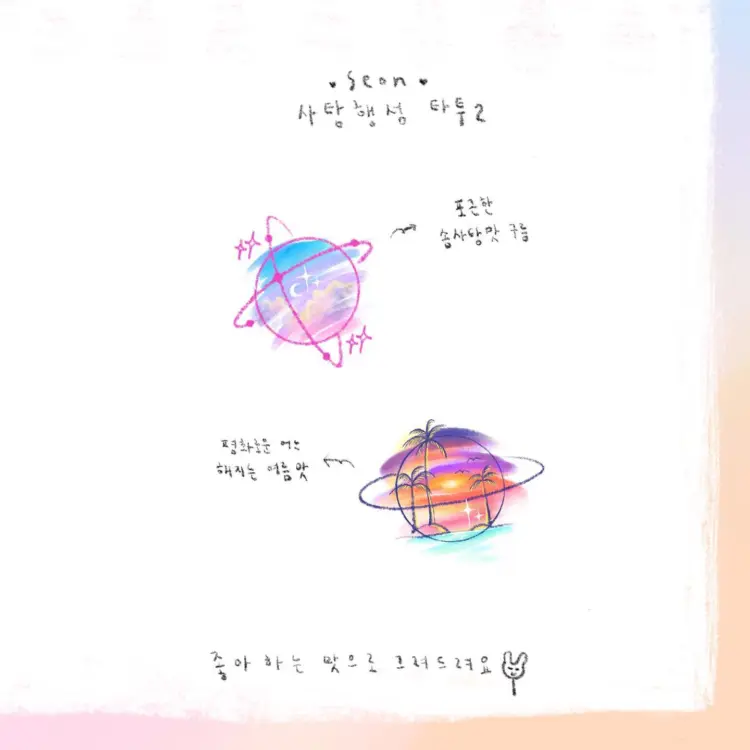 ♥ Seon ♥
사탕행성 타투2
포근한
솜사탕맛 구름
평화로운 어느
해지는 여름 맛
좋아하는 맛으로 그려드려요